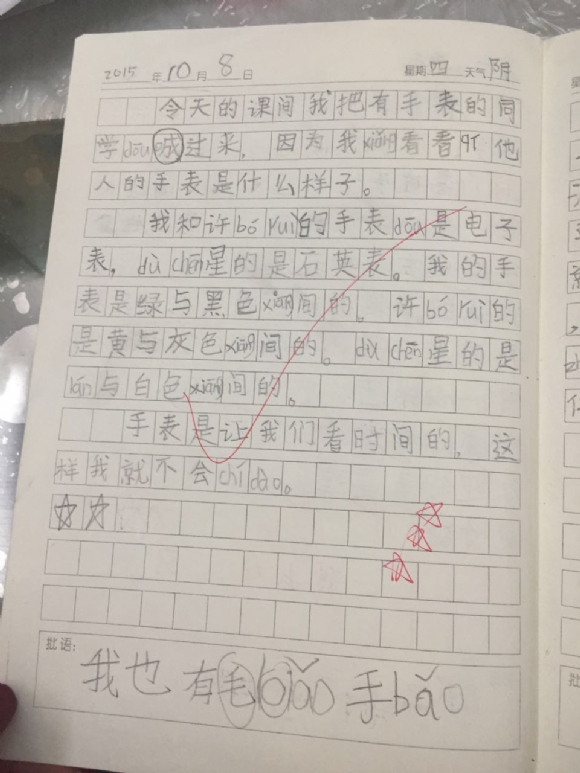 2015 年 10 月 8 日 星期 四 天气 阴
今天的课间我把有手表的同
学dōu喊过来，因为我xiǎng看看 他
人的手表是什么样子。
我和许bó ruì的手表dōu是电子
表，dù chén星的是石英表。我的手
表是绿与黑色xiāng间的。许bó ruì的
是黄与灰色xiāng间的。dù chén星的是
lán与白色xiāng间的。
手表是让我们看时间的，这
样我就不会chí dào。
批语：
我也有毛bǎo手bǎo